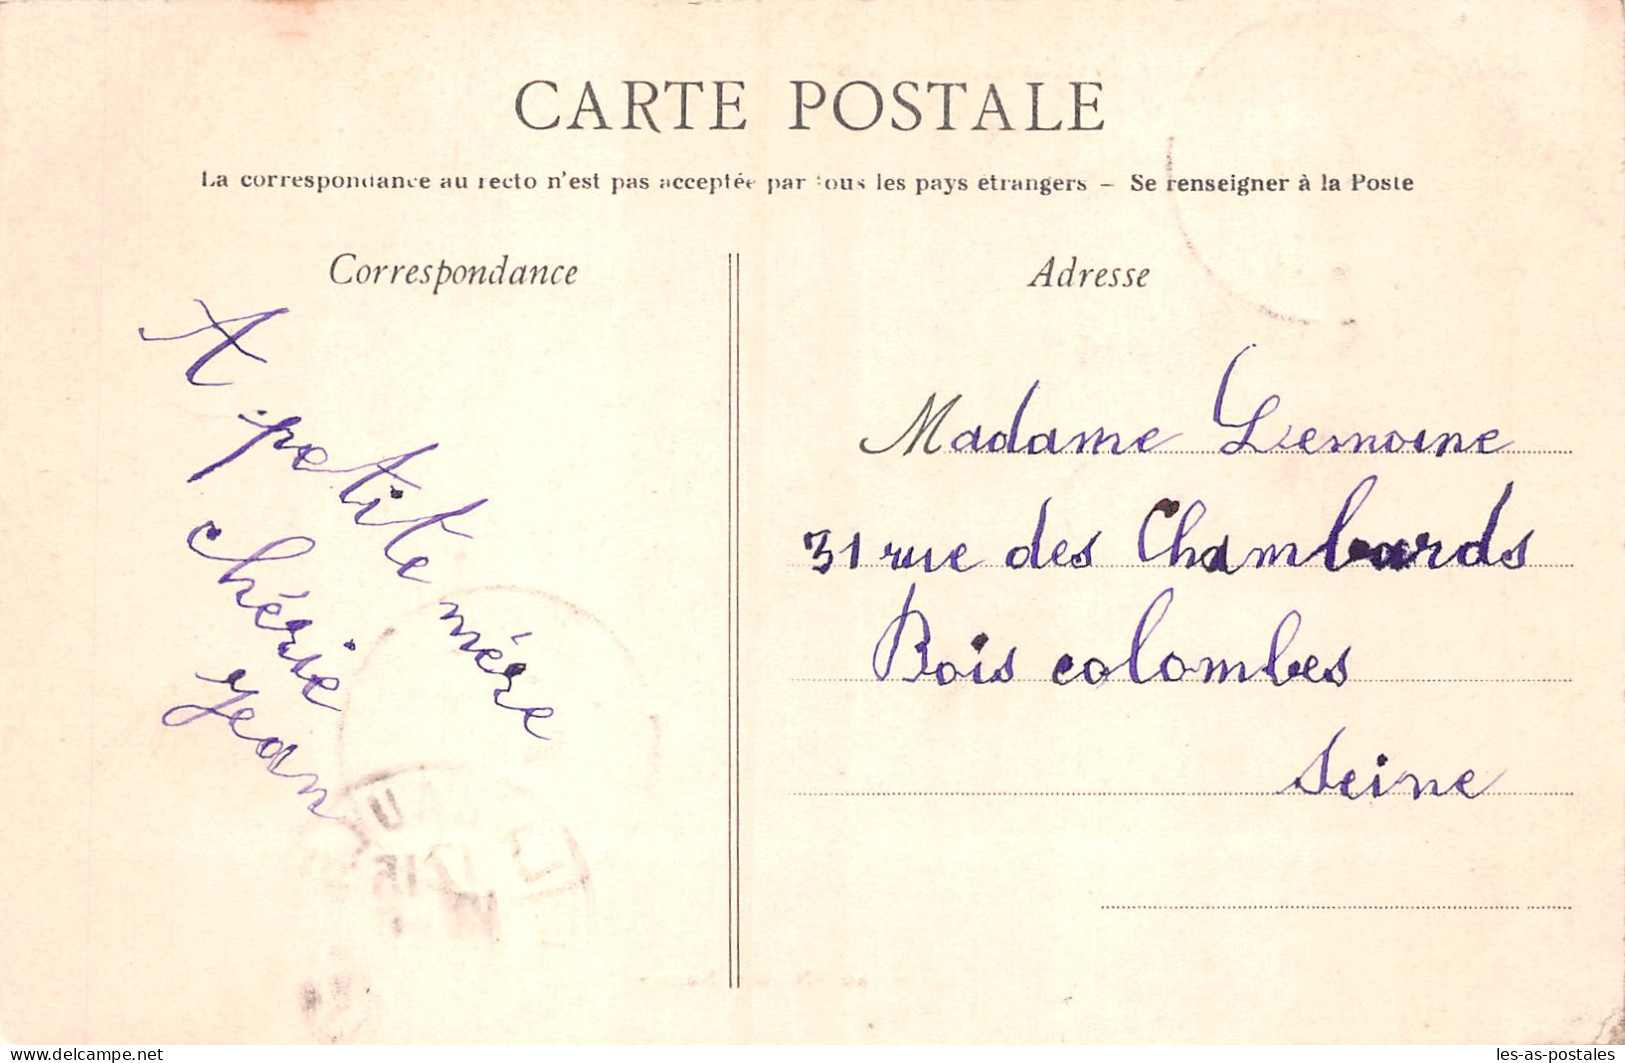 CARTE POSTALE
La correspondance au recto n'est pas acceptée par tous les pays étrangers – Se renseigner à la Poste
Correspondance
A
petite mère
chérie
Jean
Adresse
Madame Lemoine
31 rue des Chambards
Bois colombes
Seine
www.delcampe.net
les-as-postales